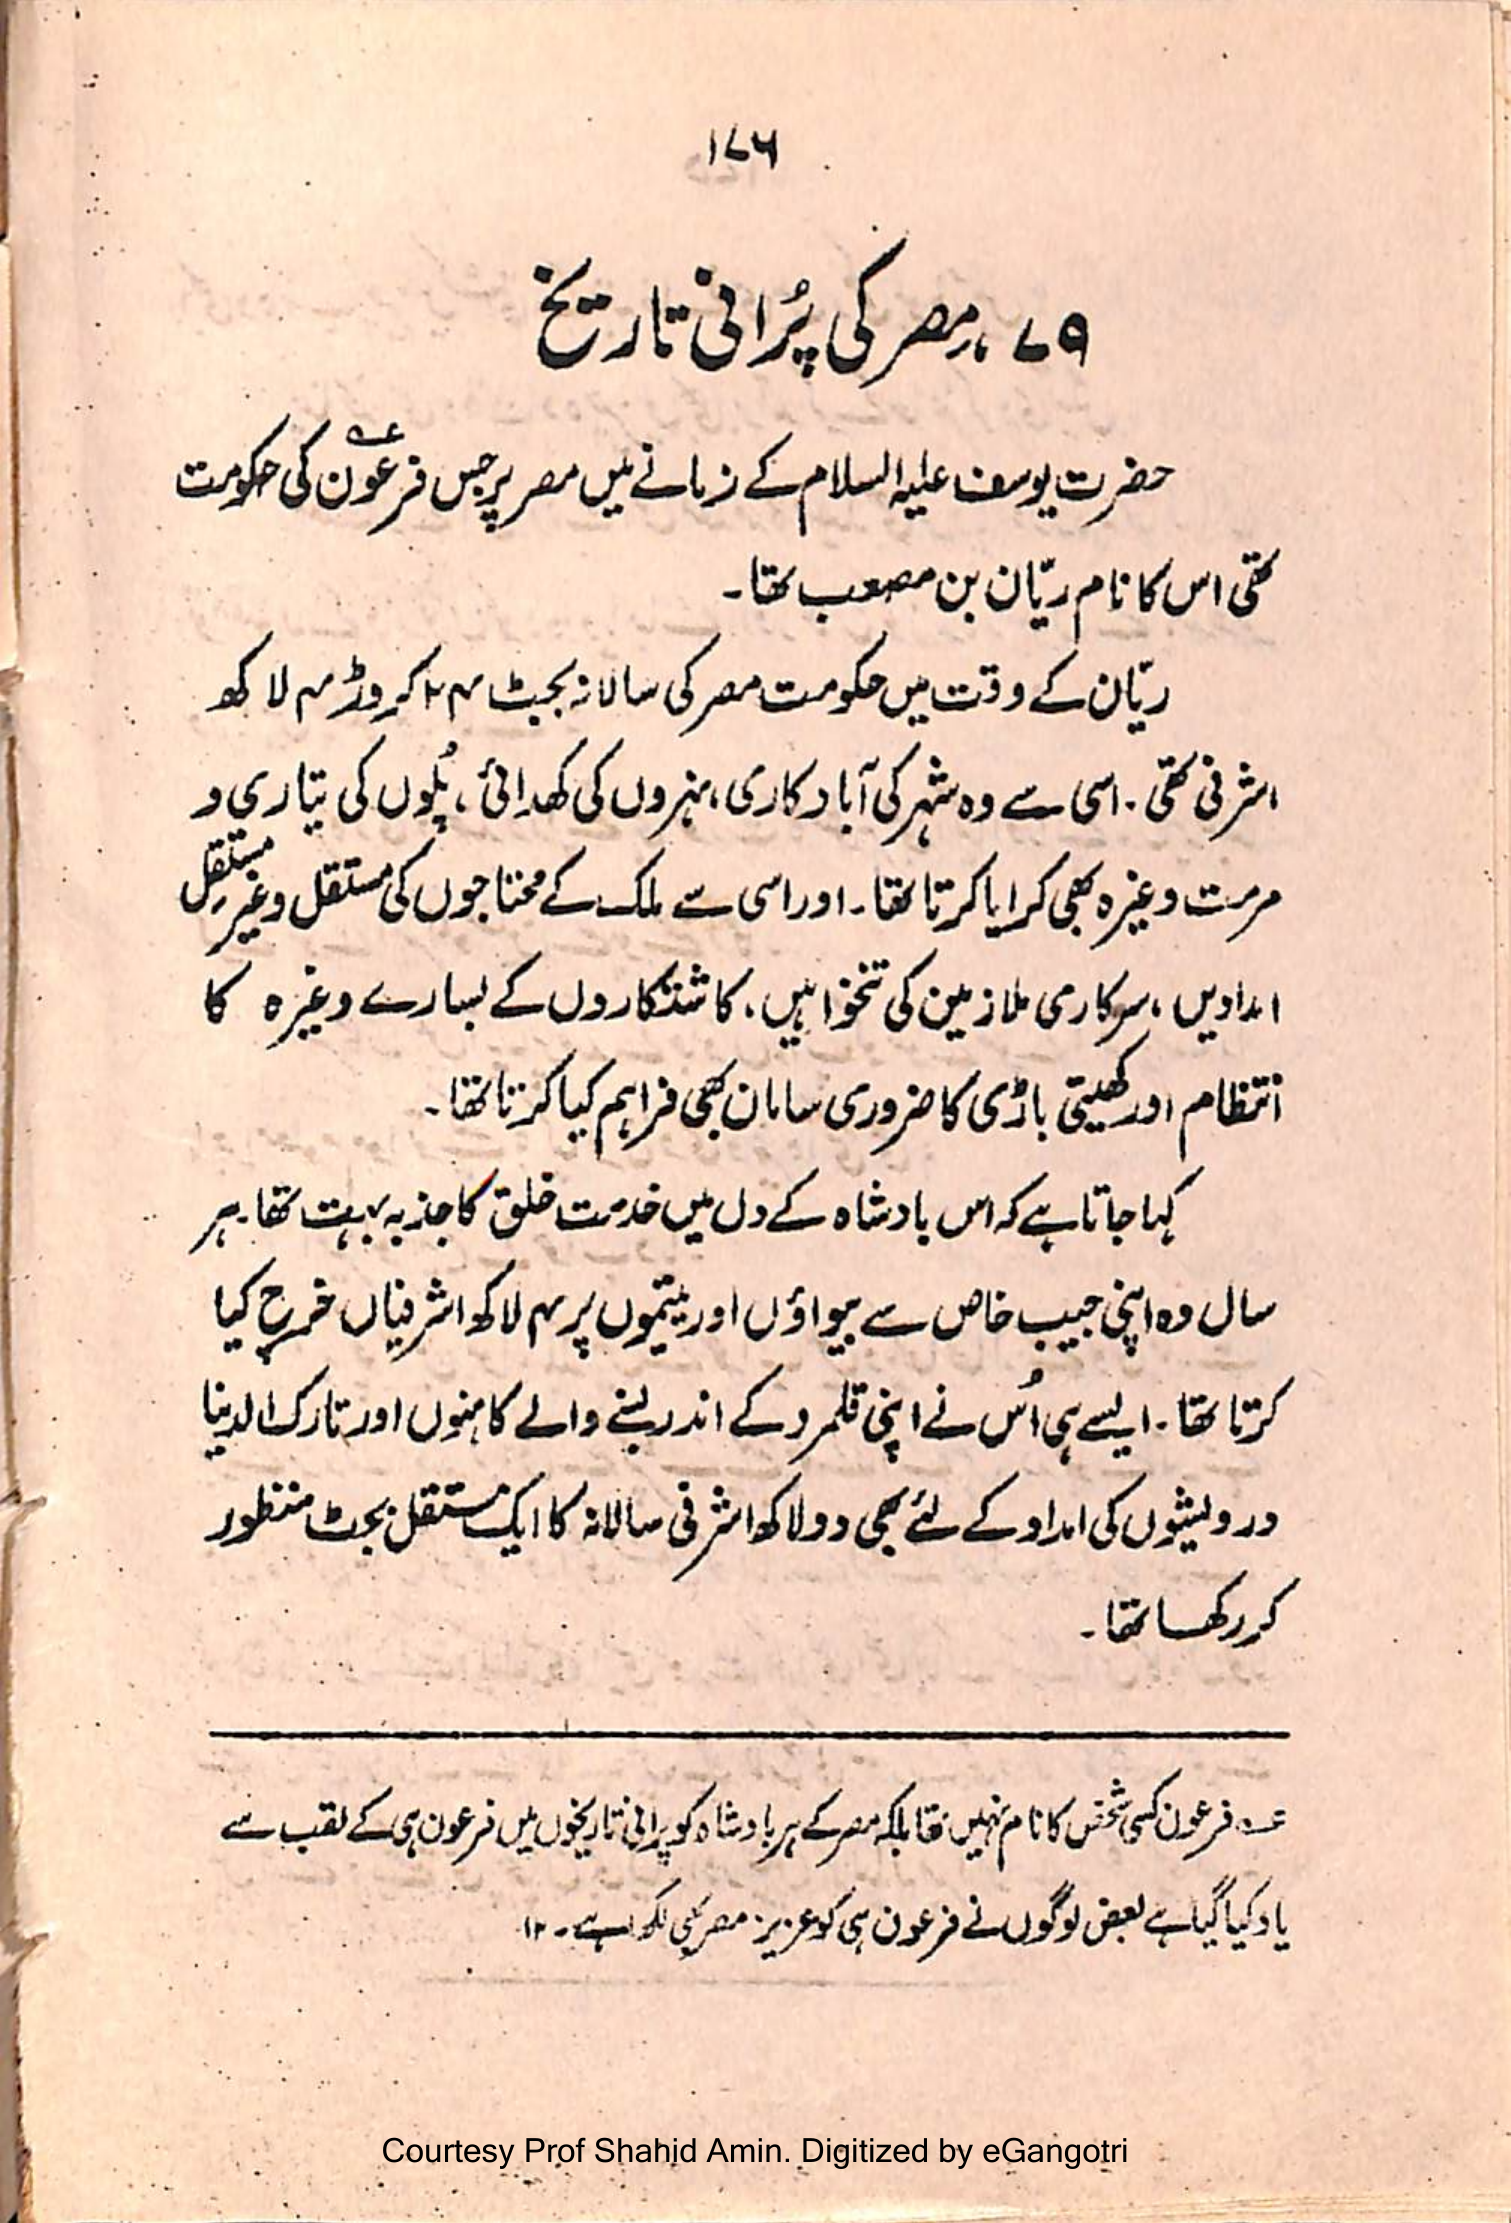 ۱۷۶
۷۹، مصر کی پُرانی تاریخ
حضرت یوسف علیہ السلام کے زمانے میں مصر پر جس فرعون عہ کی حکومت
تھی اس کا نام ریّان بن مصعب تھا۔
ریّان کے وقت میں حکومت مصر کی سالانہ بجٹ ۲۴ کروڑ ۴ لاکھ
اشرفی تھی۔ اسی سے وہ شہر کی آباد کاری، نہروں کی کھدائی، پُلوں کی تیاری و
مرمت وغیرہ بھی کرایا کرتا تھا۔ اور اسی سے ملک کے محتاجوں کی مستقل وغیر مستقل
امدادیں، سرکاری ملازمین کی تنخواہیں، کاشتکاروں کے لسارے وغیرہ کا
انتظام اور کھیتی باڑی کا ضروری سامان بھی فراہم کیا کرتا تھا۔
کہا جاتا ہے کہ اس بادشاہ کے دل میں خدمت خلق کا جذبہ بہت تھا۔ ہر
سال وہ اپنی جیب خاص سے بیواؤں اور یتیموں پر ۴ لاکھ اشرفیاں خرچ کیا
کرتا تھا۔ ایسے ہی اُس نے اپنی قلمرو کے اندر بسنے والے کاہنوں اور تارک الدنیا
درویشوں کی امداد کے لئے بھی دو لاکھ اشرفی سالانہ کا ایک مستقل بجٹ منظور
کر رکھا تھا۔
عہ فرعون کسی شخص کا نام نہیں تھا بلکہ مصر کے ہر بادشاہ کو پرانی تاریخوں میں فرعون ہی کے لقب سے
یاد کیا گیا ہے بعض لوگوں نے فرعون ہی کو عزیز مصر بھی لکھا ہے۔ ۱۲
Courtesy Prof Shahid Amin. Digitized by eGangotri